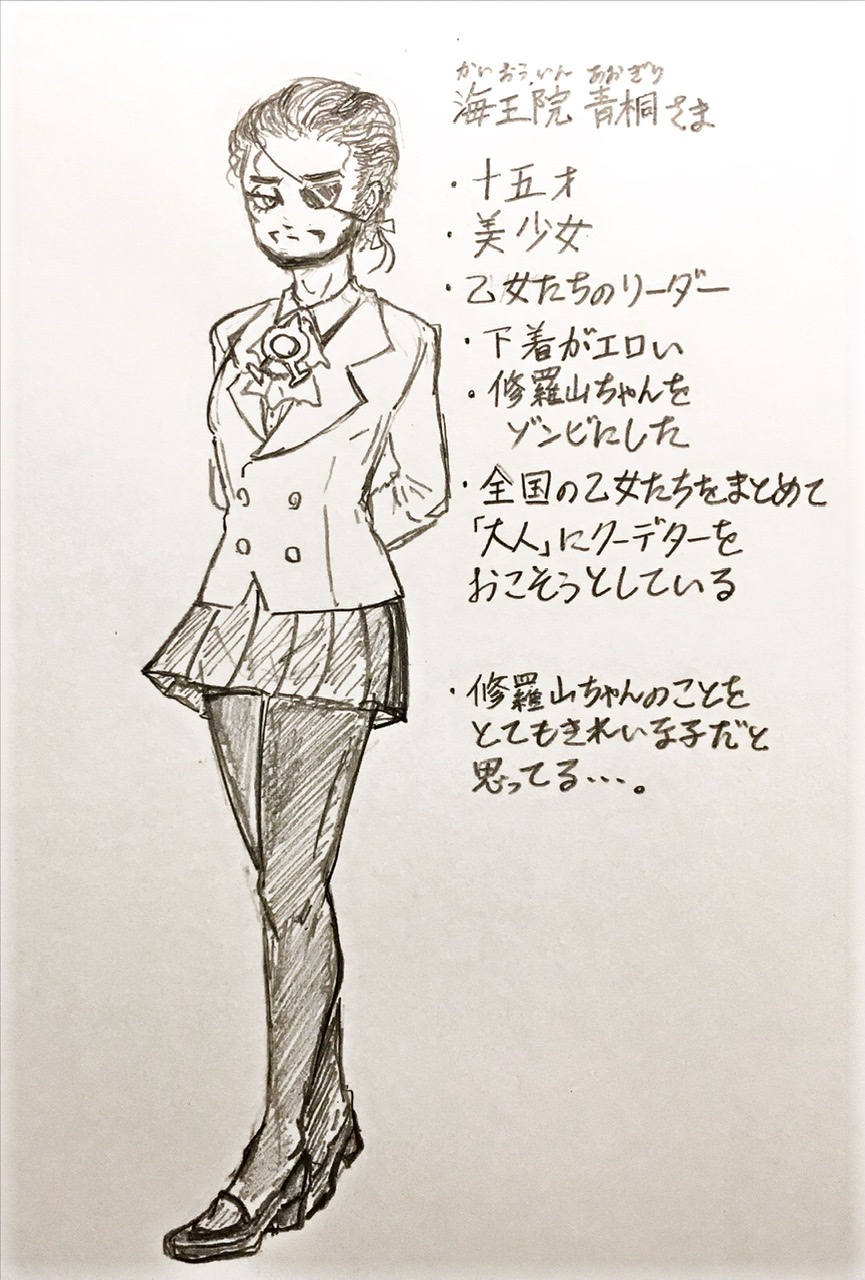 かいおういん あおぎり
海王院 青桐さま
・十五才
・美少女
・乙女たちのリーダー
・下着がエロい
・修羅山ちゃんを
ゾンビにした
・全国の乙女たちをまとめて
「大人」にクーデターを
おこそうとしている
・修羅山ちゃんのことを
とてもきれいな子だと
思ってる…。